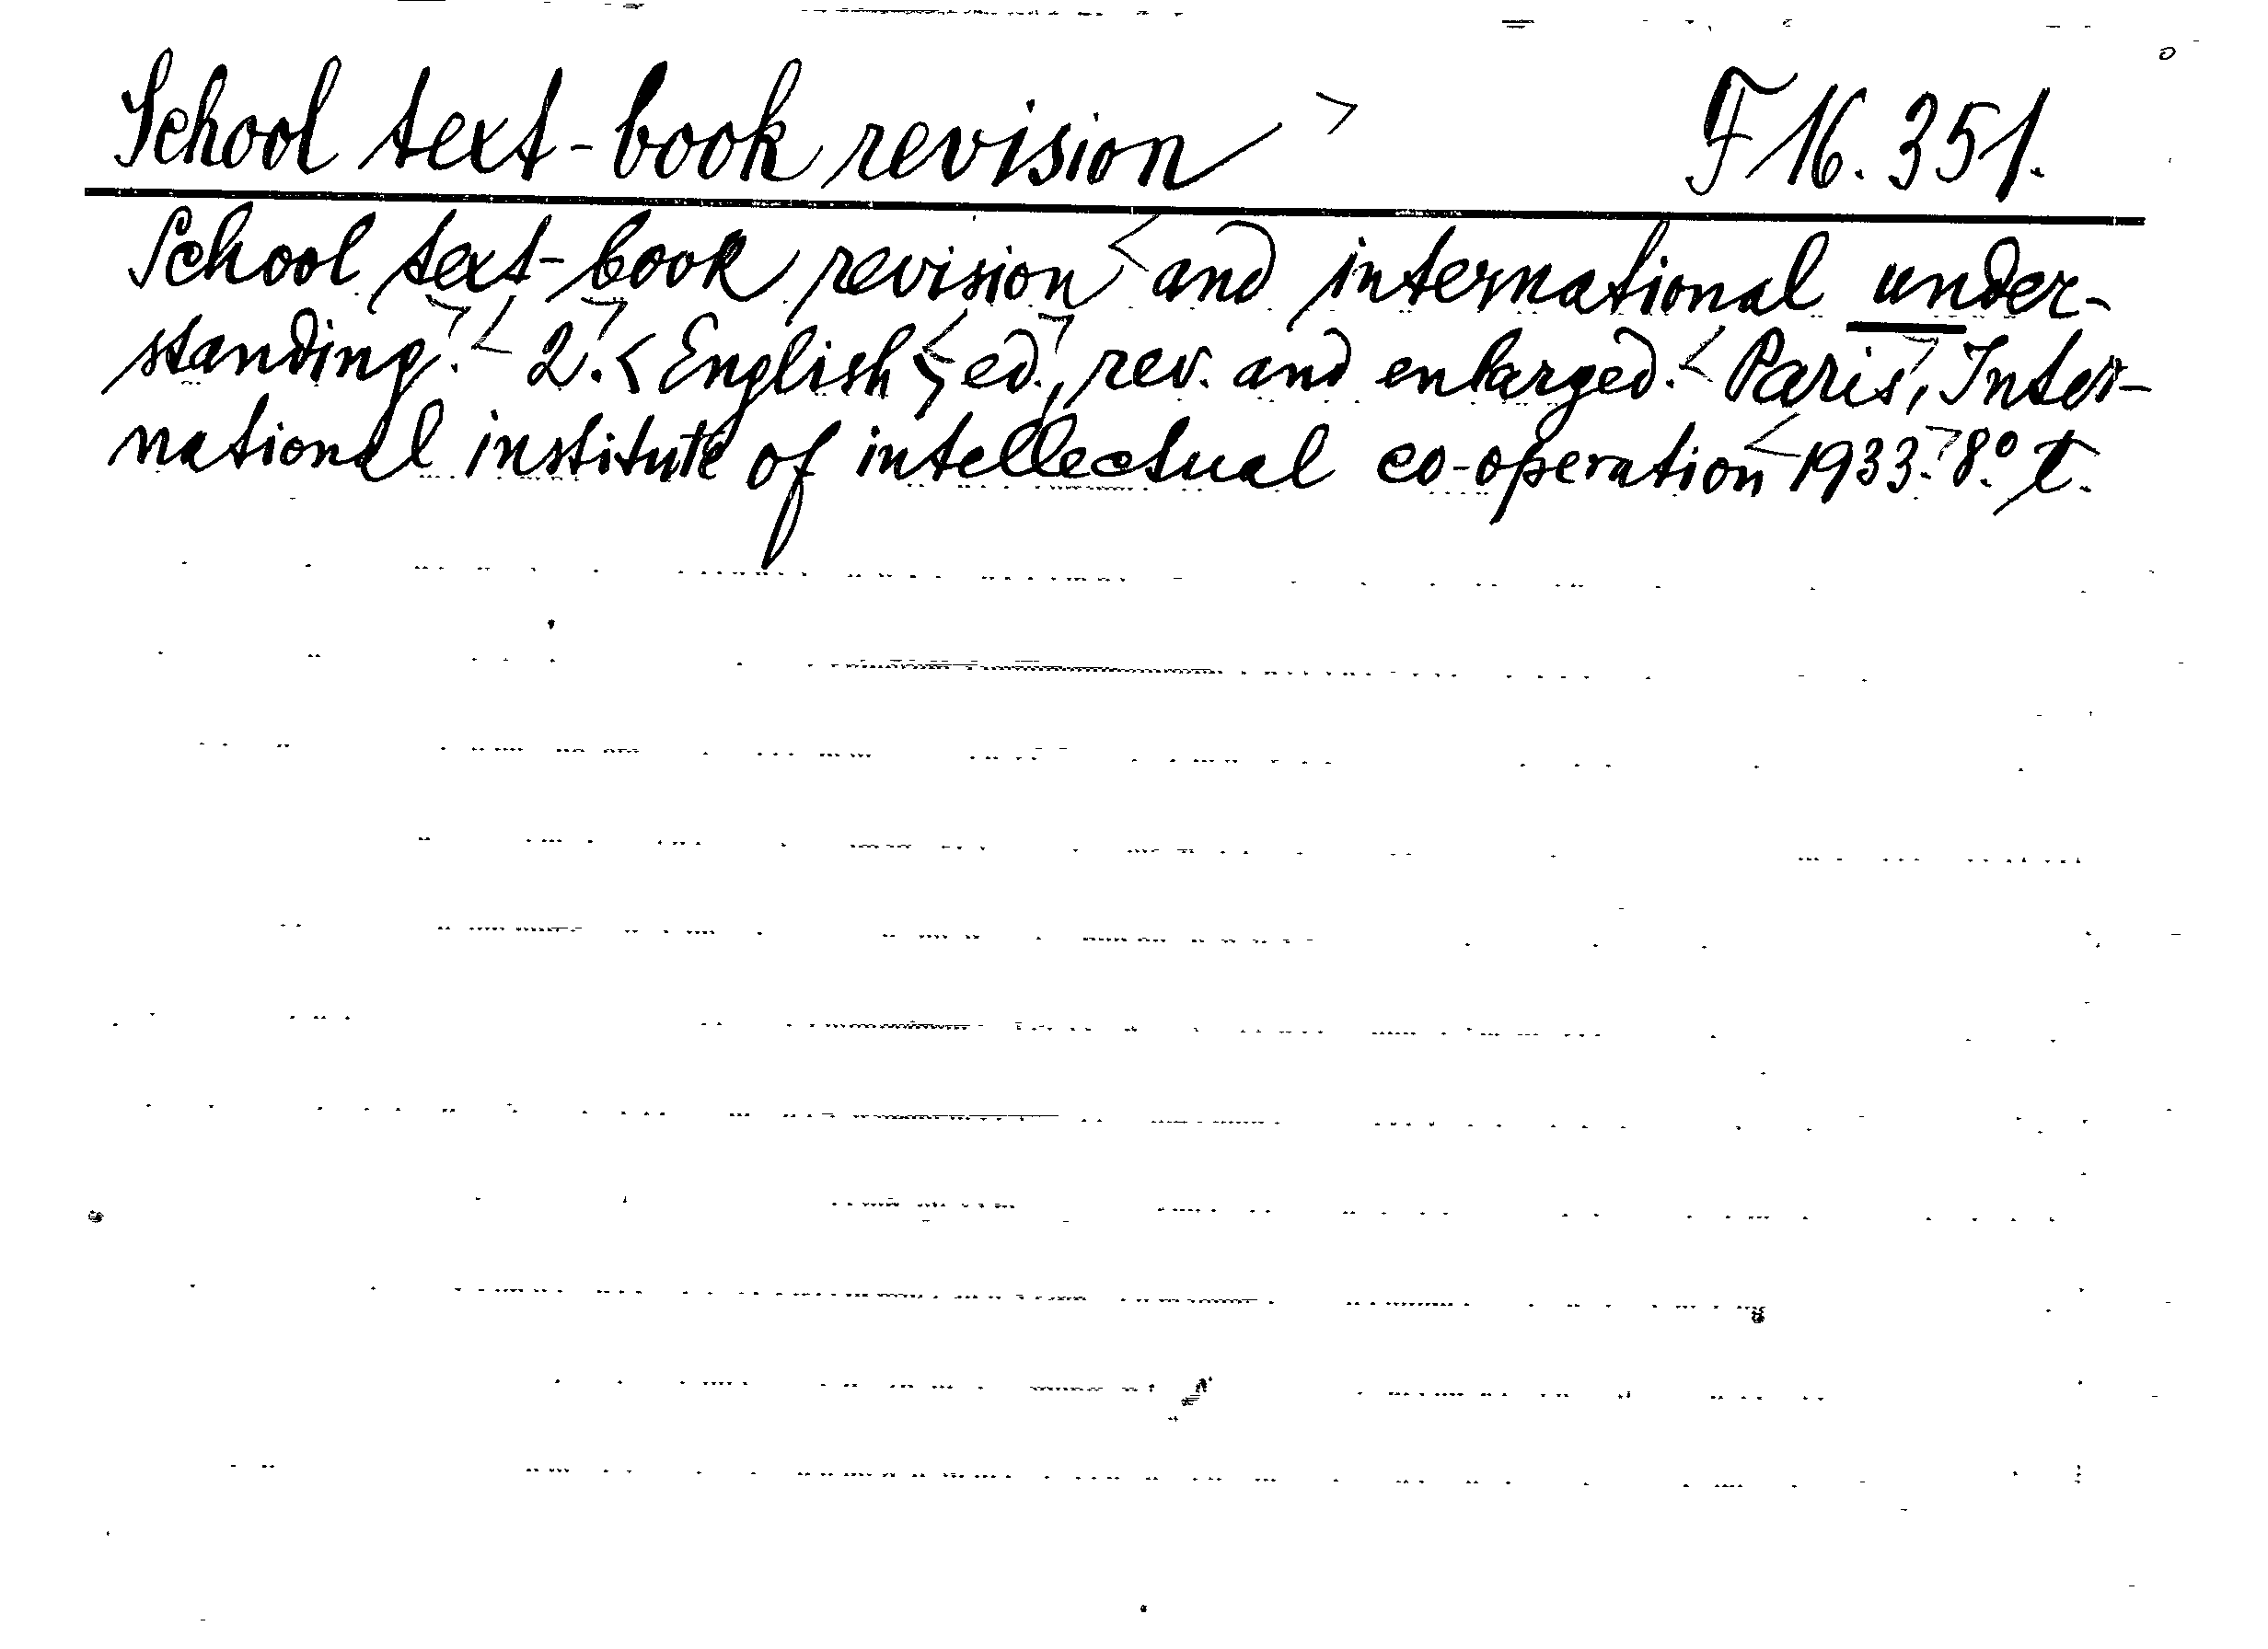 School text-book revision F 16.351.
School text-book revision and international under-
standing. 2. English ed., rev. and enlarged. Paris, Inter-
national institute of intellectual co-operation 1933. 8:o T.